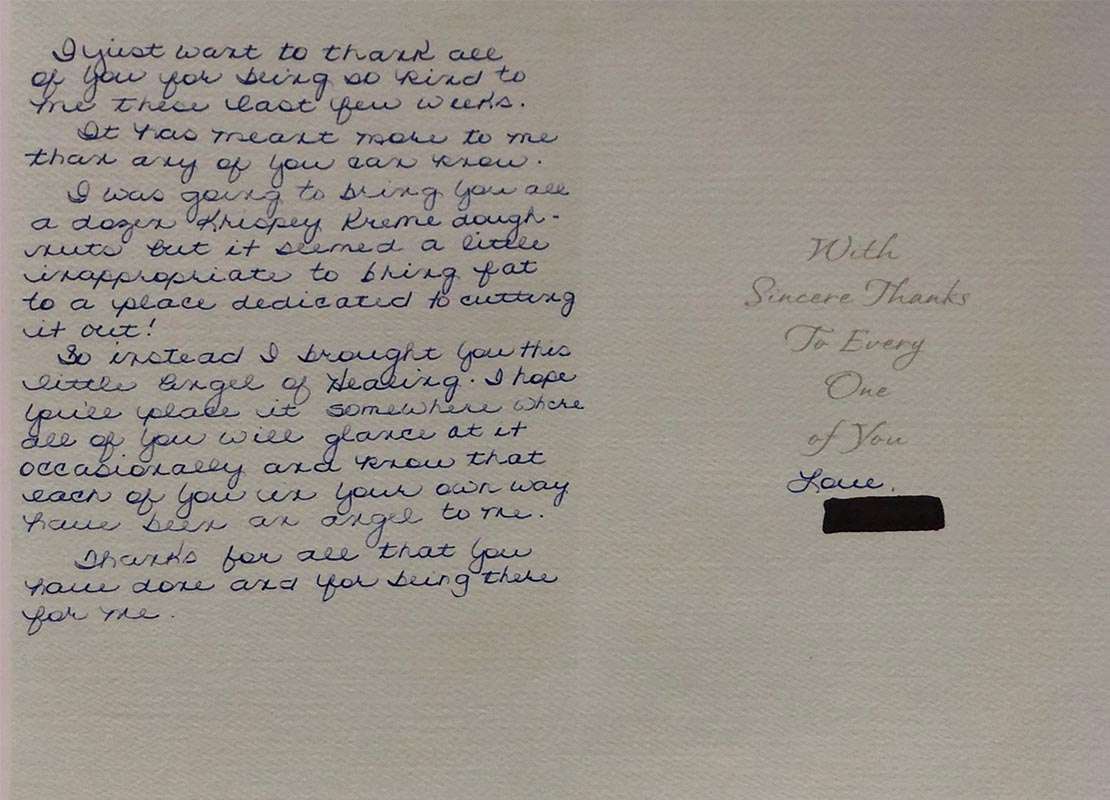 I just want to thank all
of you for being so kind to
me these last few weeks.
It has meant more to me
than any of you can know.
I was going to bring you all
a dozen Krispey Kreme dough-
nuts but it seemed a little
inappropriate to bring fat
to a place dedicated to cutting
it out!
So instead I brought you this
little Angel of Healing. I hope
you'll place it somewhere where
all of you will glance at it
occasionally and know that
each of you in your own way
have been an angel to me.
Thanks for all that you
have done and for being there
for me.
With
Sincere Thanks
To Every
One
of You
Love,